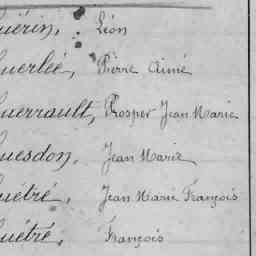 uérin, Léon
uerlée, Pierre Aimé
uerrault, Prosper Jean Marie
uesdon, Jean Marie
uétré, Jean Marie François
uétré, François